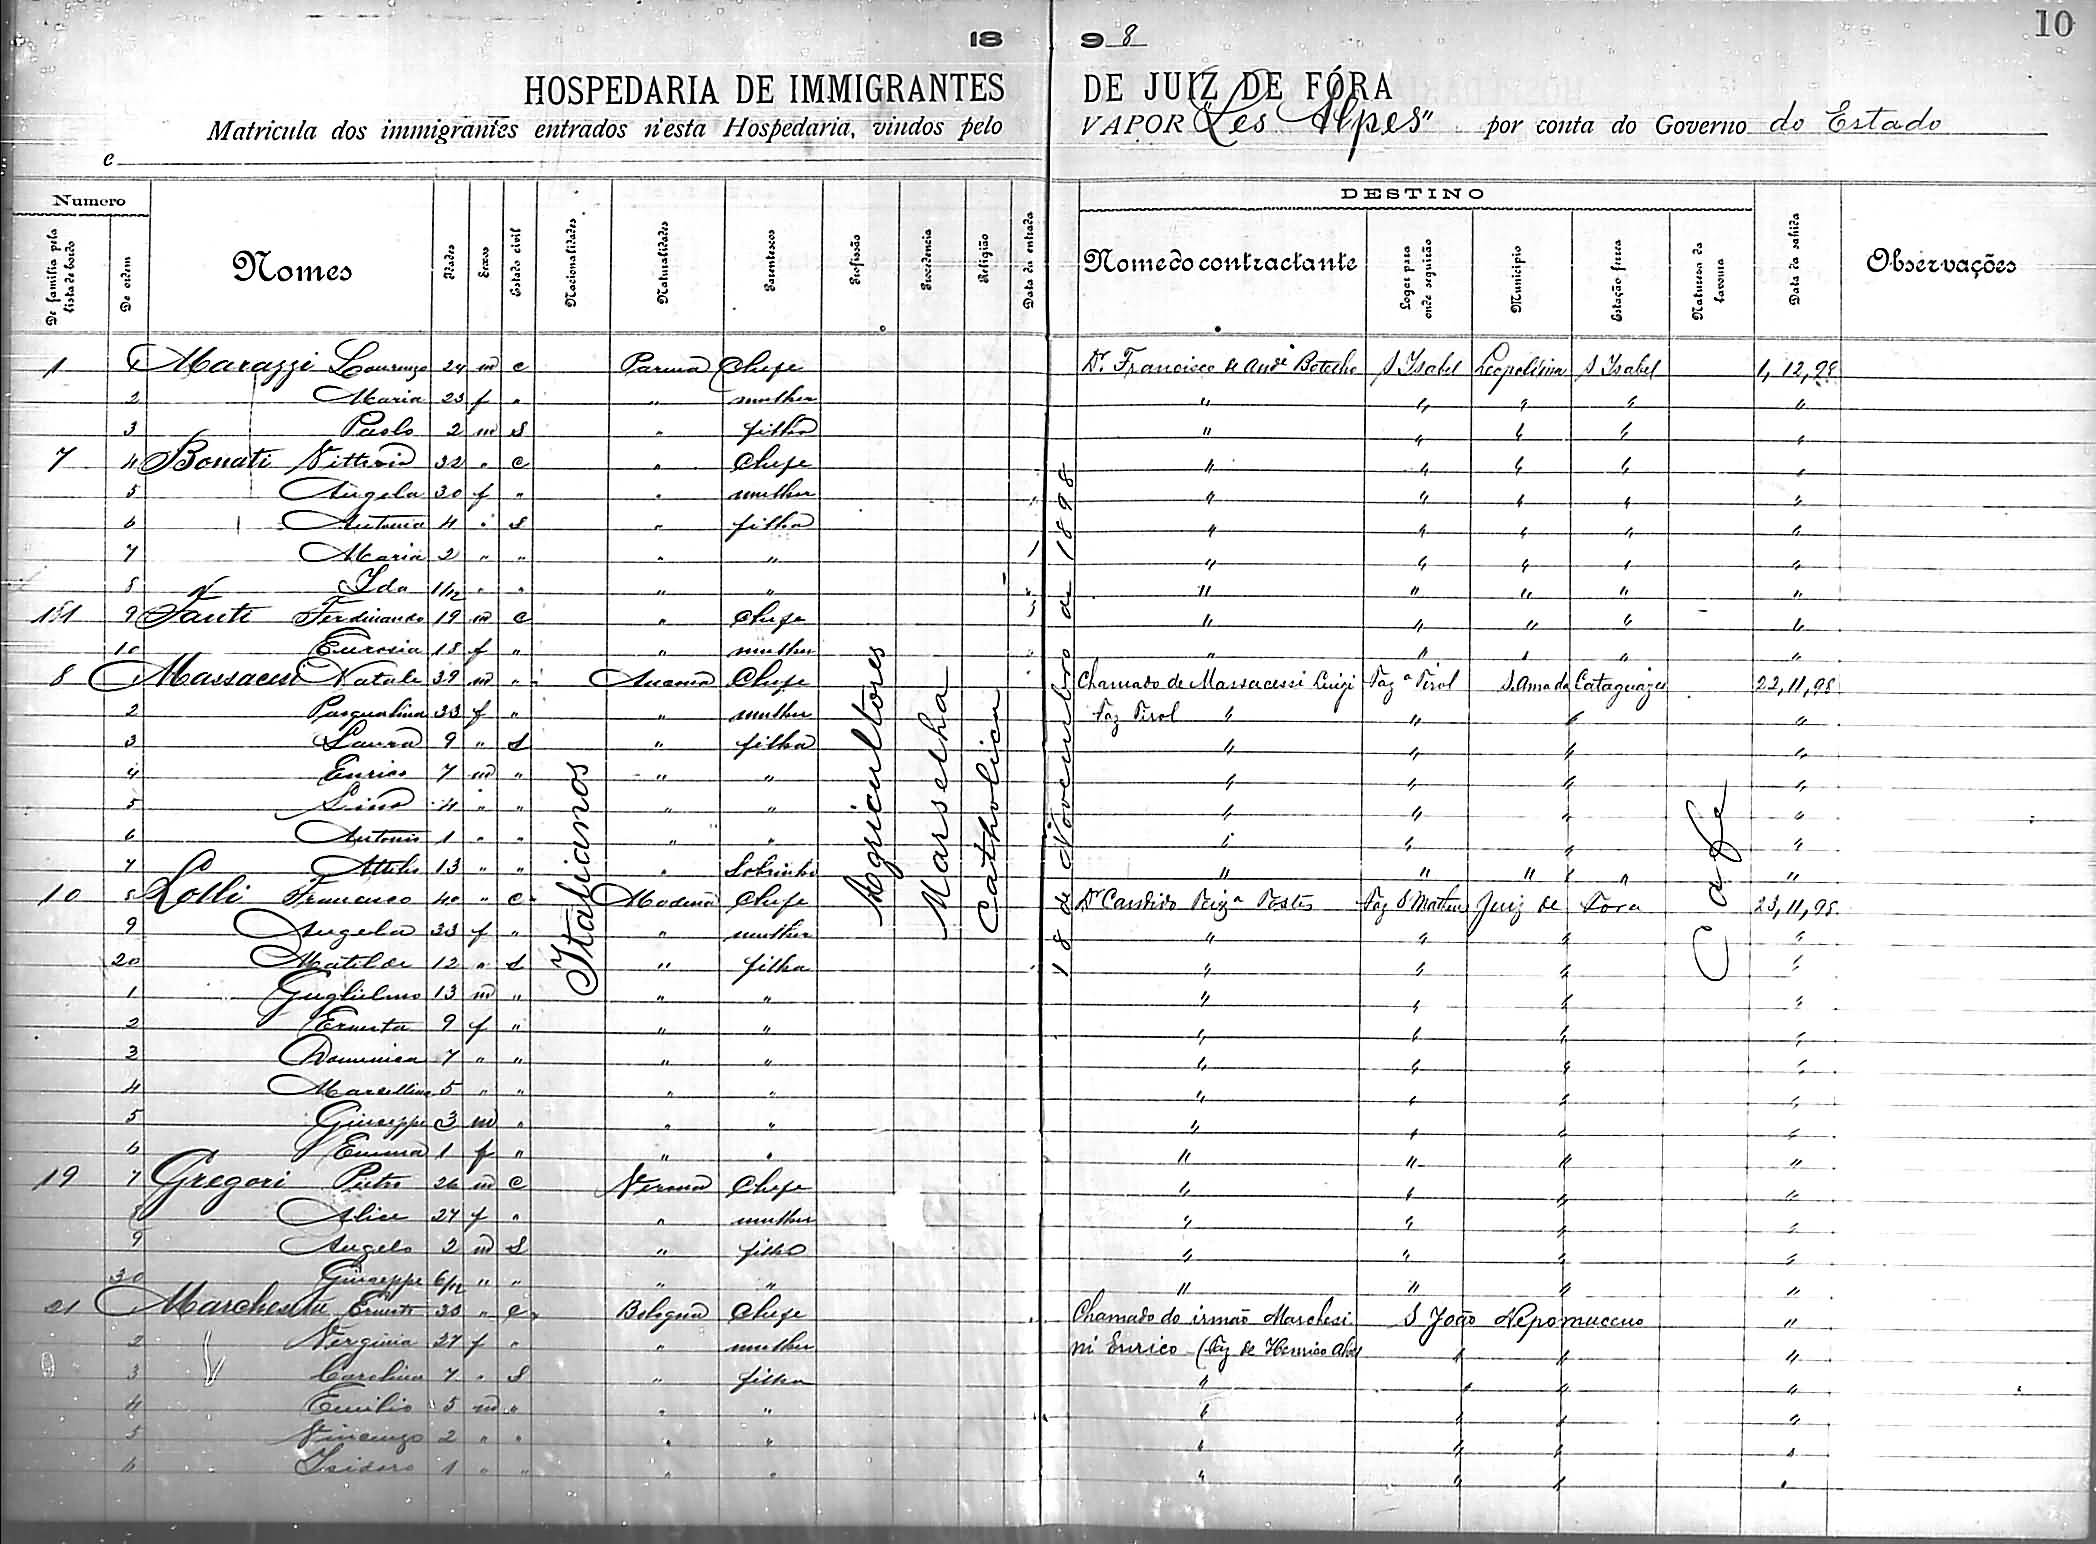 10
18 98
HOSPEDARIA DE IMMIGRANTES DE JUIZ DE FÓRA
Matricula dos immigrantes entrados n'esta Hospedaria, vindos pelo VAPOR "Les Alpes" por conta do Governo do Estado
e
Numero DESTINO
De familia pela lista de bordo De ordem Nomes Idades Sexos Estado civil Nacionalidades Naturalidades Parentescos Profissão Procedencia Religião Data da entrada Nome do contractante Logar para onde seguirão Municipio Estação ferrea Natureza da lavoura Data da sahida Observações
1 1 Marazzi Lourenzo 24 m c Parma Chefe Dr. Francisco de Botelho S Ysabel Leopoldina S Ysabel 1, 12, 98
2 Maria 23 f " " mulher " " " " "
3 Paolo 2 m S " filho " " " " "
7 4 Bonati Vittorio 32 " c " Chefe " " " " "
5 Angela 30 f " " mulher " " " " "
6 Antonia 4 " S " filha " " " " "
7 Maria 2 " " " " " " " " "
8 Ida 1/12 " " " " " " " " "
9 Ferdinando 19 m c " Chefe " " " " "
10 Eurosia 18 f " " mulher " " " " "
8 1 Massacesi Natale 39 m " Ancona Chefe Chamado de Massacesi Luigi Fazª Tirol Cataguazes 22, 11, 98
2 Pasqualina 33 f " " mulher Faz Tirol " " " "
3 Laura 9 " S " filha " " " "
4 Enrico 7 m " " " " " " "
5 Lino 4 " " " " " " " "
6 Antonio 1 " " " " " " " "
7 Attilio 13 " " " Sobrinho " " " " "
10 8 Lolli Francesco 40 " c Modena Chefe Dr Candido Teixª Tostes Faz S Matheus Juiz de Fora 23, 11, 98
9 Angela 33 f " " mulher " " " "
20 Matilde 12 " S " filha " " " "
1 Guglielmo 13 m " " " " " " "
2 Ernesta 9 f " " " " " " "
3 Domenica 7 " " " " " " " "
4 Marcellina 5 " " " " " " " "
5 Giuseppe 3 m " " " " " " "
6 Emma 1 f " " " " " " "
19 7 Gregori Pietro 26 m c Verona Chefe " " " "
8 Alice 27 f " " mulher " " " "
9 Angelo 2 m S " filho " " " "
30 Giuseppe 6/12 " " " " " " " "
21 1 Ernesto 33 " c Bologna Chefe Chamado do irmão Marchesi S João Nepomuceno "
2 Verginia 27 f " " mulher ni Enrico (Faz de Henrico " " "
3 Carolina 7 " S " filha " " " "
4 Emilio 5 m " " " " " " "
5 Vincenzo 2 " " " " " " " "
6 Isidoro 1 " " " " " " " "
Italianos
Agricultores
Marselha
Catholica
18 de Novembro de 1898
Cafe